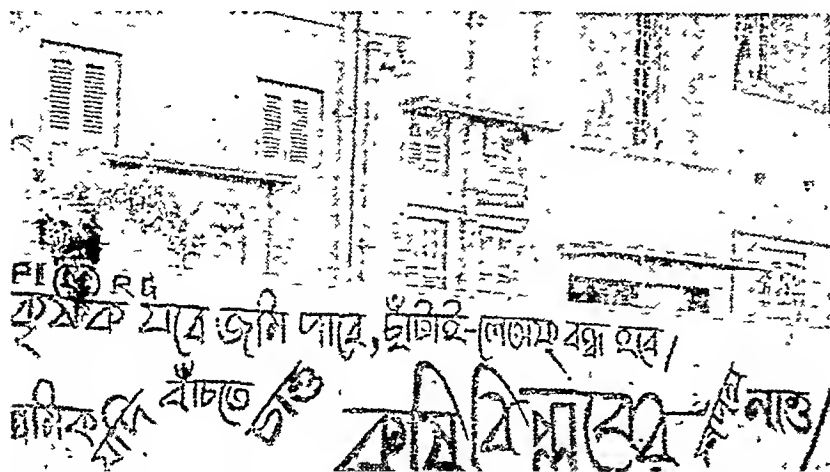 কৃষক যবে জমি পাবে, ছাঁটাই-লেঅফ বন্ধ হবে।
শ্রমিক যদি বাঁচতে চাও কৃষি বিপ্লবের নাও